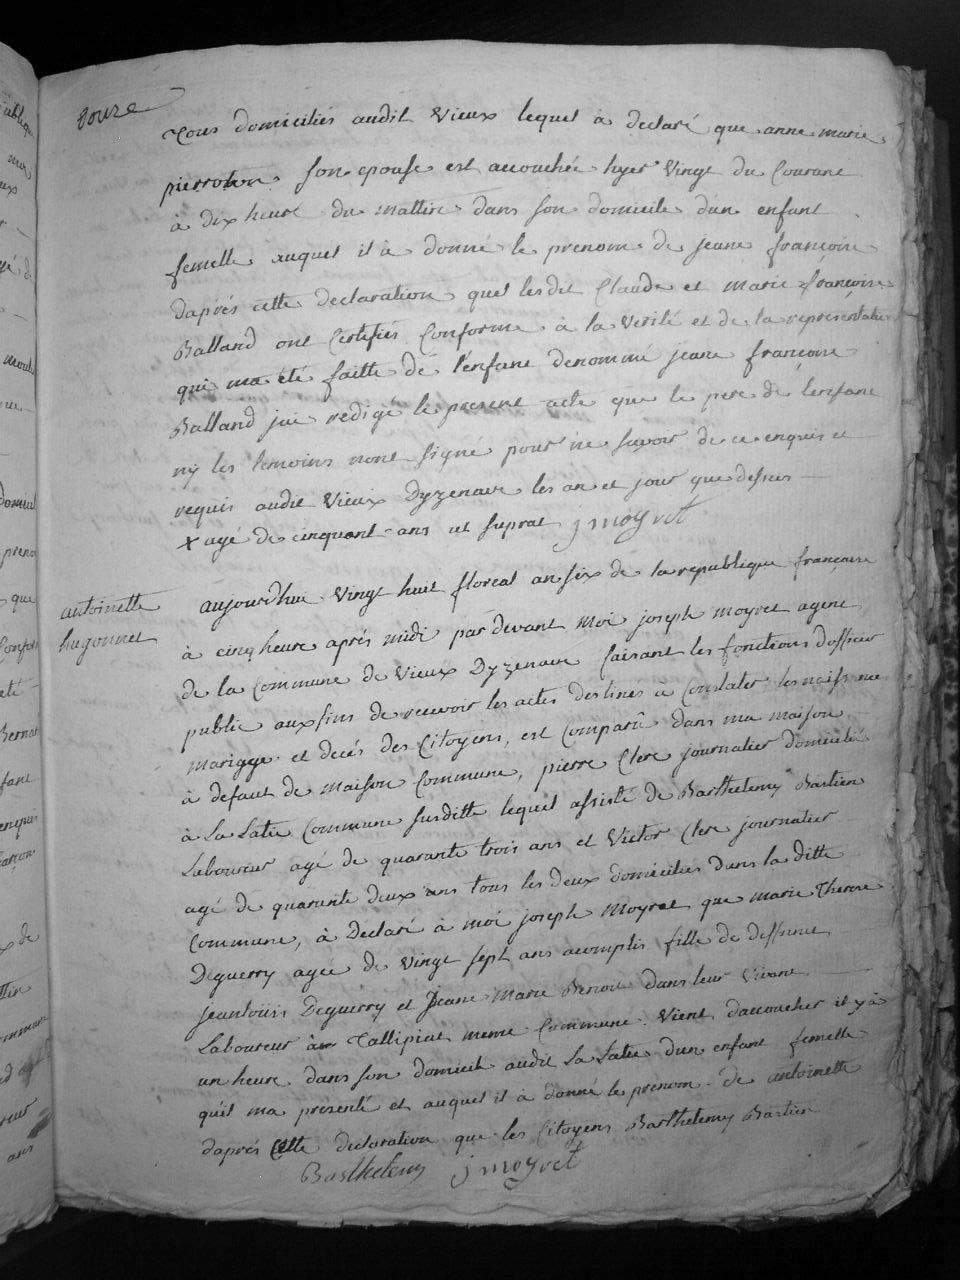 douze
Tous domiciliés audit Vieux lequel à declaré que anne marie
pierroton son epouse est accouchée hyer Vingt du Courant
à dix heure du mattin dans son domicile d'un enfant
femelle auquel il à donné le prenom de jeane françoise
daprés cette declaration que lesdit Claude et marie françoise
Balland ont Certifiés Conforme à la Verité et de la representation
qui ma eté faitte de l'enfant denommé jeane françoise
Balland jai redigé le present acte que le pere de l'enfant
ny les temoins nont signé pour ne savoir de ce enquis et
requis audit Vieux Dyzenave les an et jour que dessus
x agé de cinquant ans ut supra j moyret
antoinette
hugonnet
aujourdhui Vingt huit floreal an six de la republique française
à cinq heure aprés midi par devant Moi joseph moyret agent
de la Commune de Vieux Dyzenave faisant les fonctions d'officier
public aux fins de recevoir les actes destinés à Constater les naissance
mariage et decés des Citoyens, est Comparû dans ma maison
à defaut de maison Commune, pierre Clerc journalier domicilié
à La Commune susditte lequel assisté de Barthelemy Bastien
Laboureur agé de quarante trois ans et Victor Clerc journalier
agé de quarante deux ans tous les deux domiciliés dans la ditte
Commune, à Déclaré à moi joseph Moyret que marie Therese
Deguerry agée de Vingt sept ans acomplis fille de deffunt
jeanlouis Deguerry et Jeane Marie Benoit dans leur Vivant
Laboureur à Tallipiat meme Commune. Vient d'accoucher il y à
un heure dans son domicil audit La d'un enfant femelle
qu'il ma presenté et auquel il à donné le prenom de antoinette
daprés cette declaration que les Citoyens Barthelemy Bastien
Barthelemy j moyret